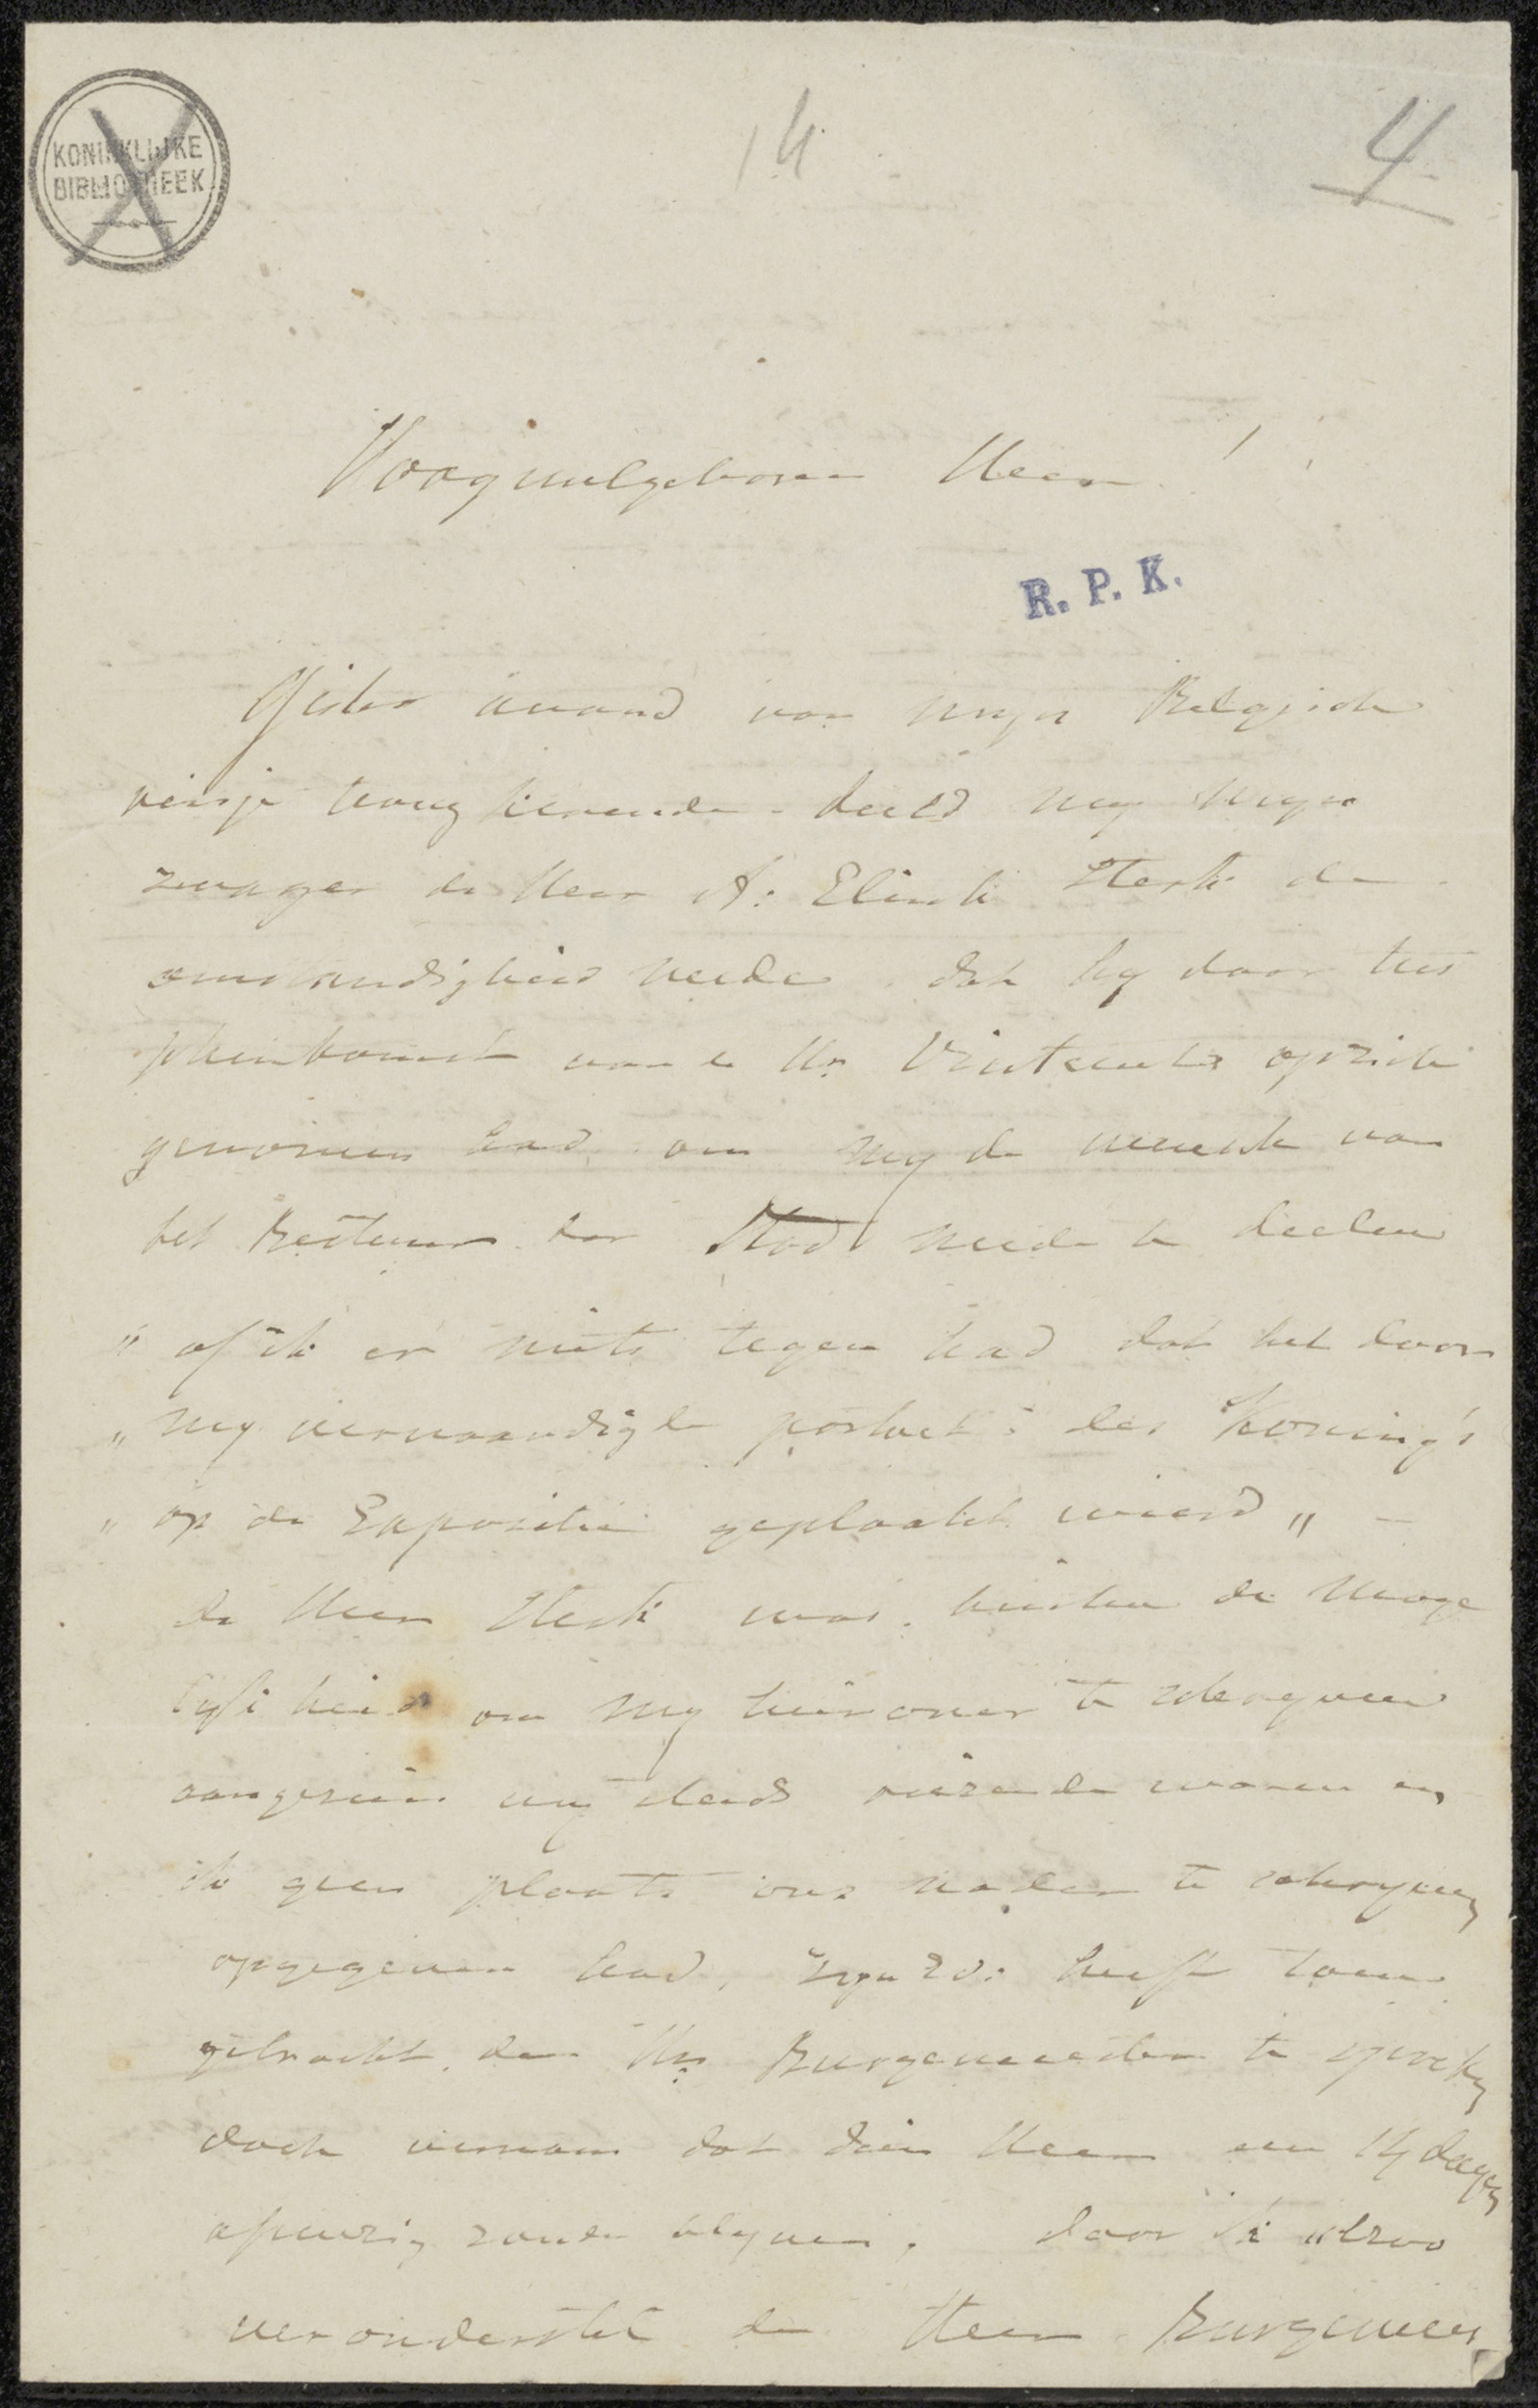 KONINKLIJKE
BIBLIOTHEEK
14
4
Hoogwelgeboren Heer!
R. P. K.
Gister avond van myn Belgisch
reisje terug keerende - deeld my myn
zwager de Heer A: Elink Sterk de
omstandigheid mede, dat hy door tus
schenkomst van de Hr opzich
genomen had, om my de wensch van
het Bestuur der Stad mede te deelen
" of ik er niets tegen had dat het door
" my vervaardigde portret des Koning's
" op de Expositie geplaatst wierd " -
de Heer Sterk was buiten de moge
lykheid om my hierover te schryven
aangezien wy steeds reizende waren en
ik geen plaats ons nader te schryven
opgegeven had, zyn Ed: heeft toen
getracht den Hr Burgemeester te spreken
doch vernam dat dien Heer een 14 dagen
afwezig zoude blyven. daar ik alzoo
veronderstel de Heer Burgemees